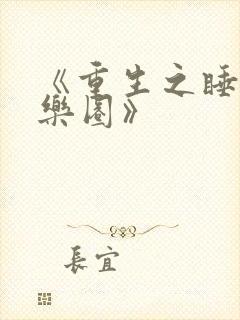 《重生之睡
樂園》
長宜